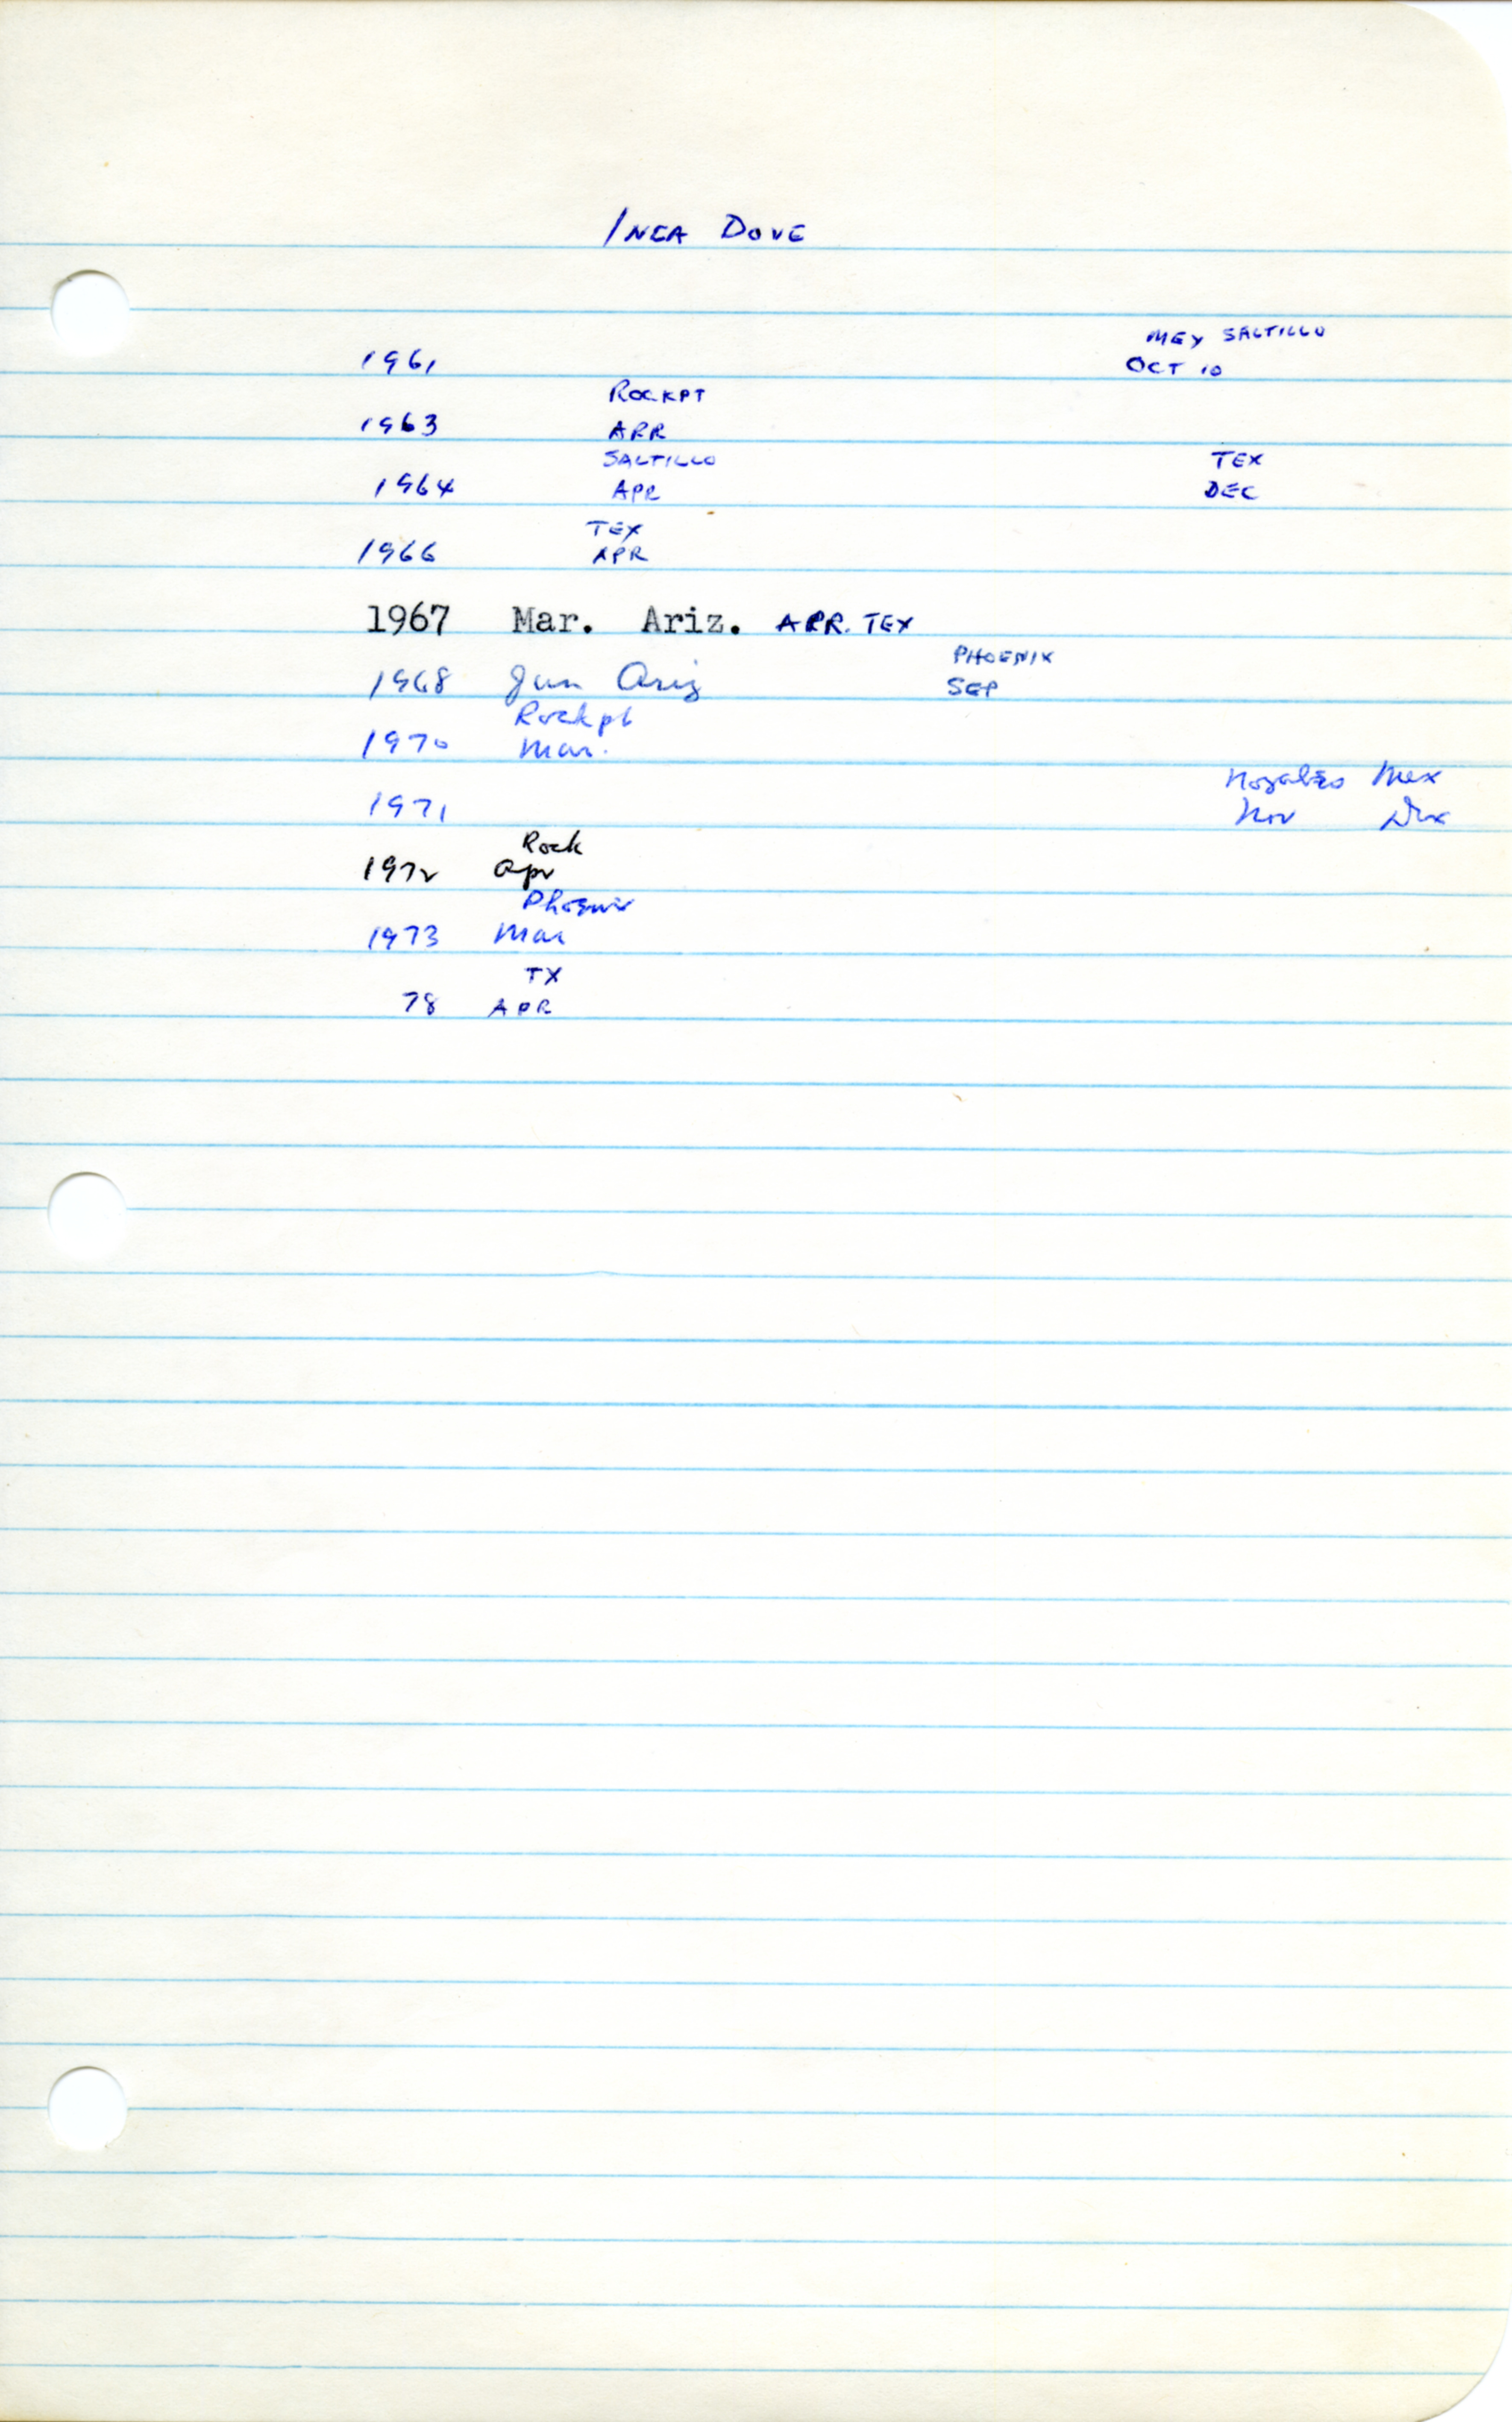 INCA DOVE
MEX SALTILLO
1961 OCT 10
ROCKPT
1963 APR
SALTILLO TEX
1964 APR DEC
TEX
1966 APR
1967 Mar. Ariz. APR. TEX
PHOENIX
1968 Jun Ariz SEP
Rockpt
1970 Mar.
Nogales Mex
1971 Nov Dec
Rock
1972 Apr
Phoenix
1973 Mar
TX
78 APR